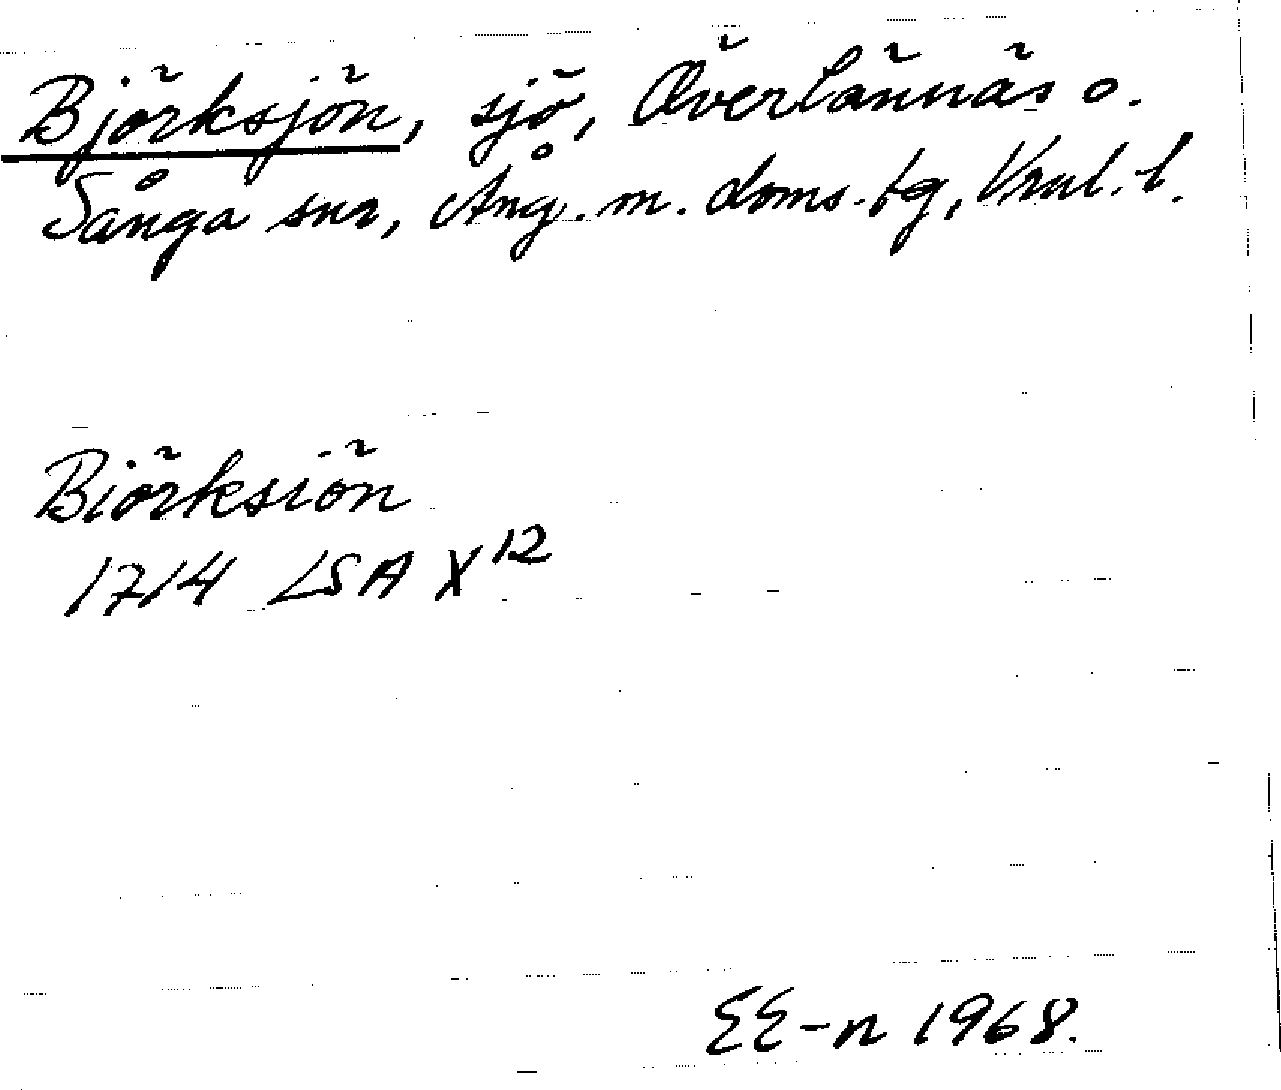 Björksjön, sjö, Överlännäs o.
Sånga snr, Ång. m. doms. tg, Vnl. l.
Biörksiön
1714 LSA X12
EE-n 1968.